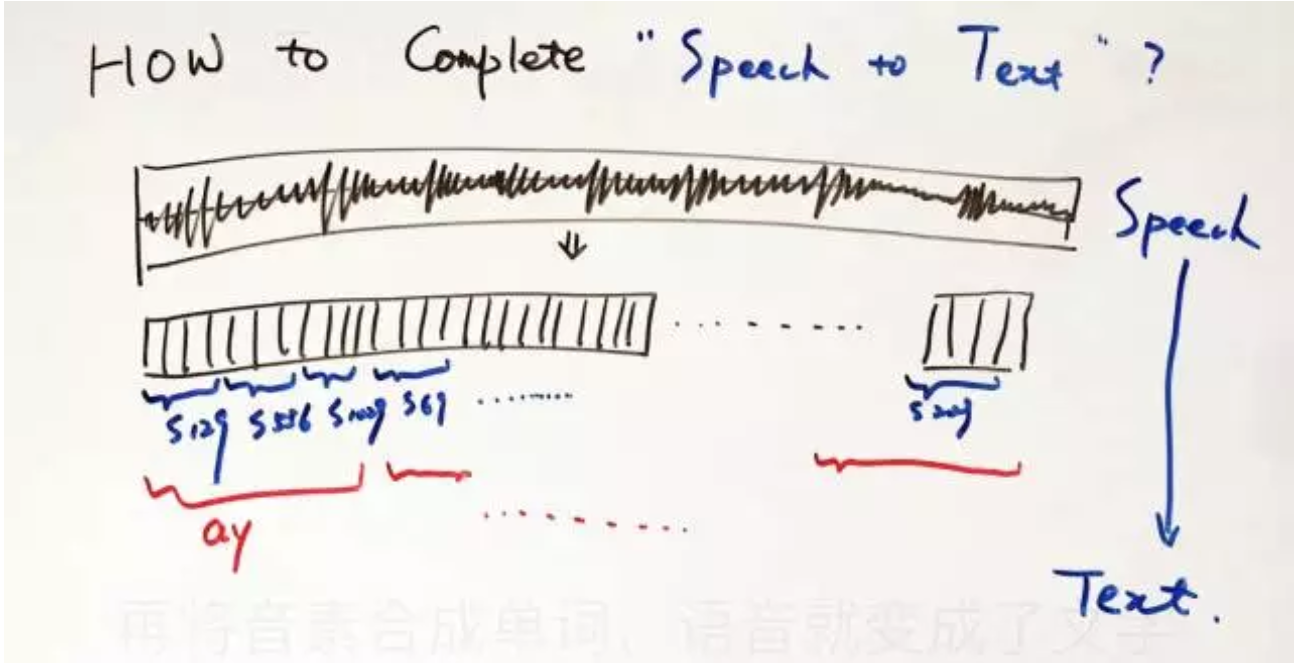 HOW to Complete "Speech to Text"?
Speech
S129 S556 S1029 S69 ........
S209
ay
........
Text.
再将音素合成单词，语音就变成了文字